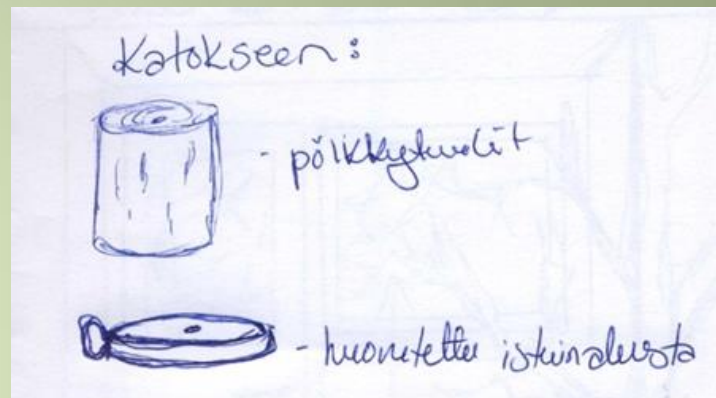 Katokseen:
- pölkkytuolit
- huovutettu istuinalusta